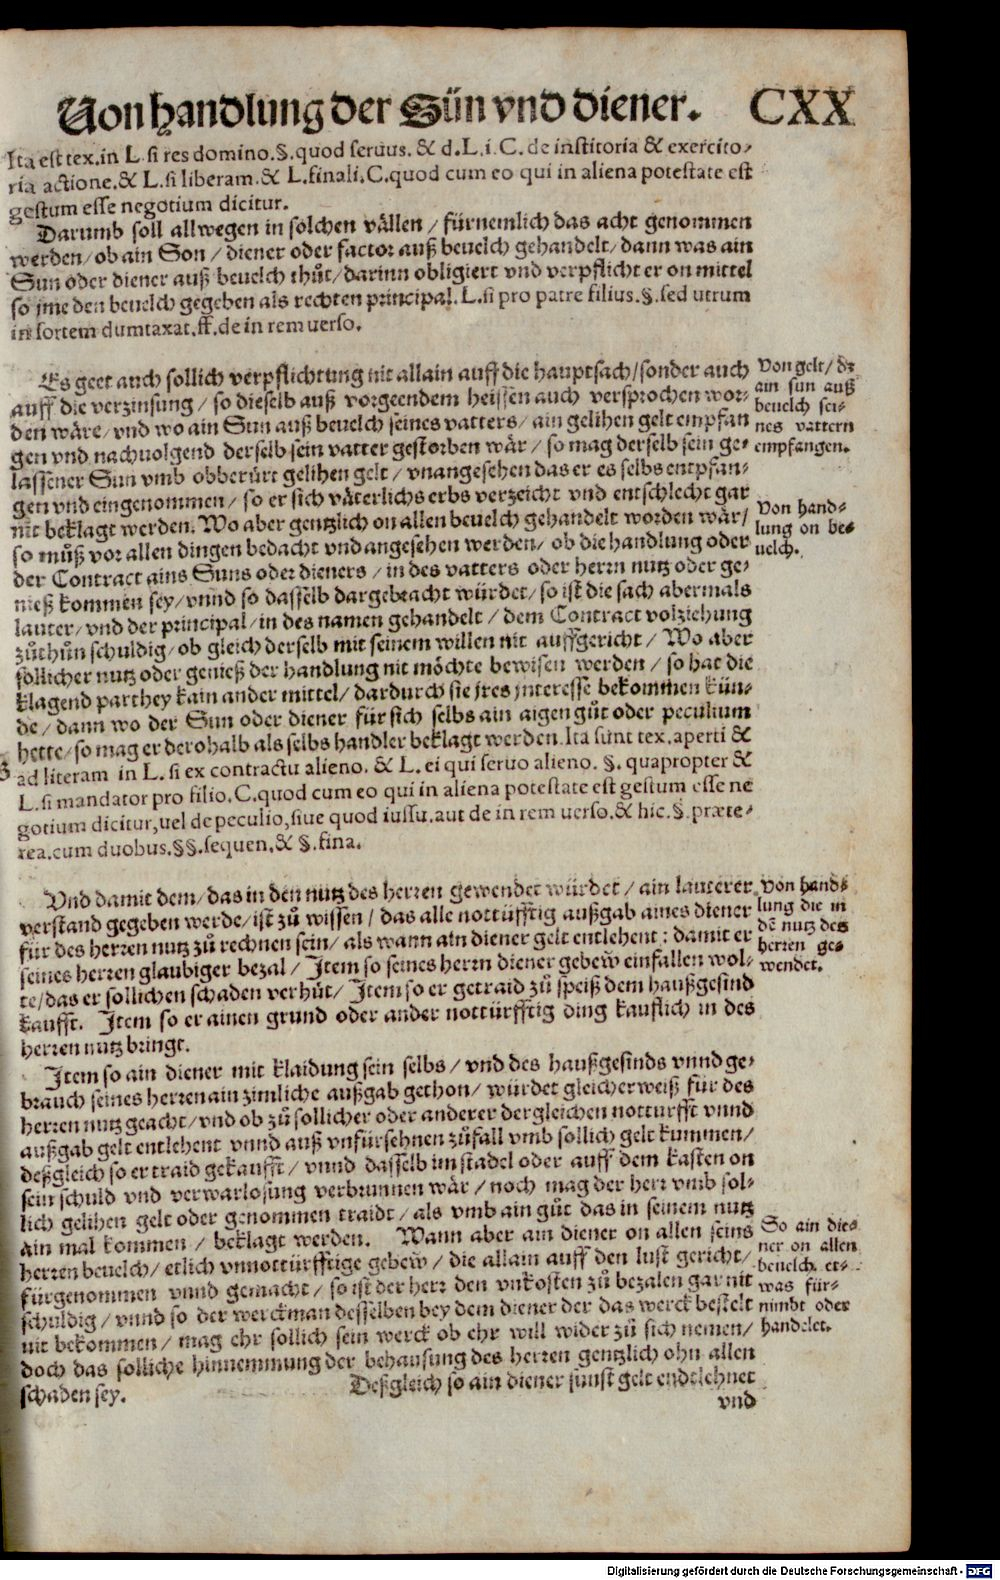 Von handlung der Sün vnd diener. CXX
Ita est tex. in L. si res domino. §. quod seruus. & d. L. i. C. de institoria & exercito-
ria actione. & L. si liberam. & L. finali. C. quod cum eo qui in aliena potestate est
gestum esse negotium dicitur.
Darumb soll allwegen in solchen vällen / fürnemlich das acht genommen
werden / ob ain Son / diener oder factor auß beuelch gehandelt / dann was ain
Sun oder diener auß beuelch thůt / darinn obligiert vnd verpflicht er on mittel
so jme den beuelch gegeben als rechten principal. L. si pro patre filius. §. sed utrum
in sortem dumtaxat. ff. de in rem uerso.
Es geet auch sollich verpflichtung nit allain auff die hauptsach / sonder auch
auff die verzinsung / so dieselb auß vorgeendem heissen auch versprochen wor-
den wäre / vnd wo ain Sun auß beuelch seines vatters / ain gelihen gelt empfan
gen vnd nachuolgend derselb sein vatter gestorben wär / so mag derselb sein ge-
lassener Sun vmb obberürt gelihen gelt / vnangesehen das er es selbs entpfan-
gen vnd eingenommen / so er sich väterlichs erbs verzeicht vnd entschlecht gar
nit beklagt werden. Wo aber gentzlich on allen beuelch gehandelt worden wär /
so můß vor allen dingen bedacht vnd angesehen werden / ob die handlung oder
der Contract ains Suns oder dieners / in des vatters oder herrn nutz oder ge-
nieß kommen sey / vnnd so dasselb dargebracht würdet / so ist die sach abermals
lauter / vnd der principal / in des namen gehandelt / dem Contract volziehung
zůthůn schuldig / ob gleich derselb mit seinem willen nit auffgericht / Wo aber
söllicher nutz oder genieß der handlung nit möchte bewisen werden / so hat die
klagend parthey kain ander mittel / dardurch sie jres jnteresse bekommen kün-
de / dann wo der Sun oder diener für sich selbs ain aigen gůt oder peculium
hette / so mag er derohalb als selbs handler beklagt werden. Ita sunt tex. aperti &
ad literam in L. si ex contractu alieno. & L. ei qui seruo alieno. §. quapropter &
L. si mandator pro filio. C. quod cum eo qui in aliena potestate est gestum esse ne
gotium dicitur, uel de peculio, siue quod iussu. aut de in rem uerso. & hic. §. præte-
rea. cum duobus. §§. sequen. & §. fina.
Von gelt / dz
ain sun auß
beuelch sei-
nes vattern
empfangen.
Von hand-
lung on be-
uelch.
Vnd damit dem / das in den nutz des herren gewendet würdet / ain lauterer
verstand gegeben werde / ist zů wissen / das alle nottürfftig außgab aines diener
für des herren nutz zů rechnen sein / als wann ain diener gelt entlehent : damit er
seines herren glaubiger bezal / Item so seines herrn diener gebew einfallen wol-
te / das er sollichen schaden verhüt / Item so er getraid zů speiß dem haußgesind
kaufft. Item so er ainen grund oder ander nottürfftig ding kauflich in des
herren nutz bringt.
Von hand-
lung die in
dē nutz des
herren ge-
wendet.
Item so ain diener mit klaidung sein selbs / vnd des haußgesinds vnnd ge-
brauch seines herren ain zimliche außgab gethon / würdet gleicher weiß für des
herren nutz geacht / vnd ob zů sollicher oder anderer dergleichen notturfft vnnd
außgab gelt entlehent vnnd auß vnfürsehnen zůfall vmb sollich gelt kummen /
deßgleich so er traid gekaufft / vnnd dasselb im stadel oder auff dem kasten on
sein schuld vnd verwarlosung verbrunnen wär / noch mag der herr vmb sol-
lich gelihen gelt oder genommen traidt / als vmb ain gůt das in seinem nutz
ain mal kommen / beklagt werden. Wann aber ain diener on allen seins
herren beuelch / etlich vnnottürfftige gebew / die allain auff den lust gericht /
fürgenommen vnnd gemacht / so ist der herr den vnkosten zů bezalen gar nit
schuldig / vnnd so der werckman desselben bey dem diener der das werck bestelt
nit bekommen / mag ehr sollich sein werck ob ehr will wider zů sich nemen /
doch das solliche hinnemmung der behausung des herren gentzlich ohn allen
schaden sey. Deßgleich so ain diener sunst gelt endtlehnet
So ain die-
ner on allen
beuelch et-
was für-
nimbt oder
handelet.
vnd
Digitalisierung gefördert durch die Deutsche Forschungsgemeinschaft - DFG